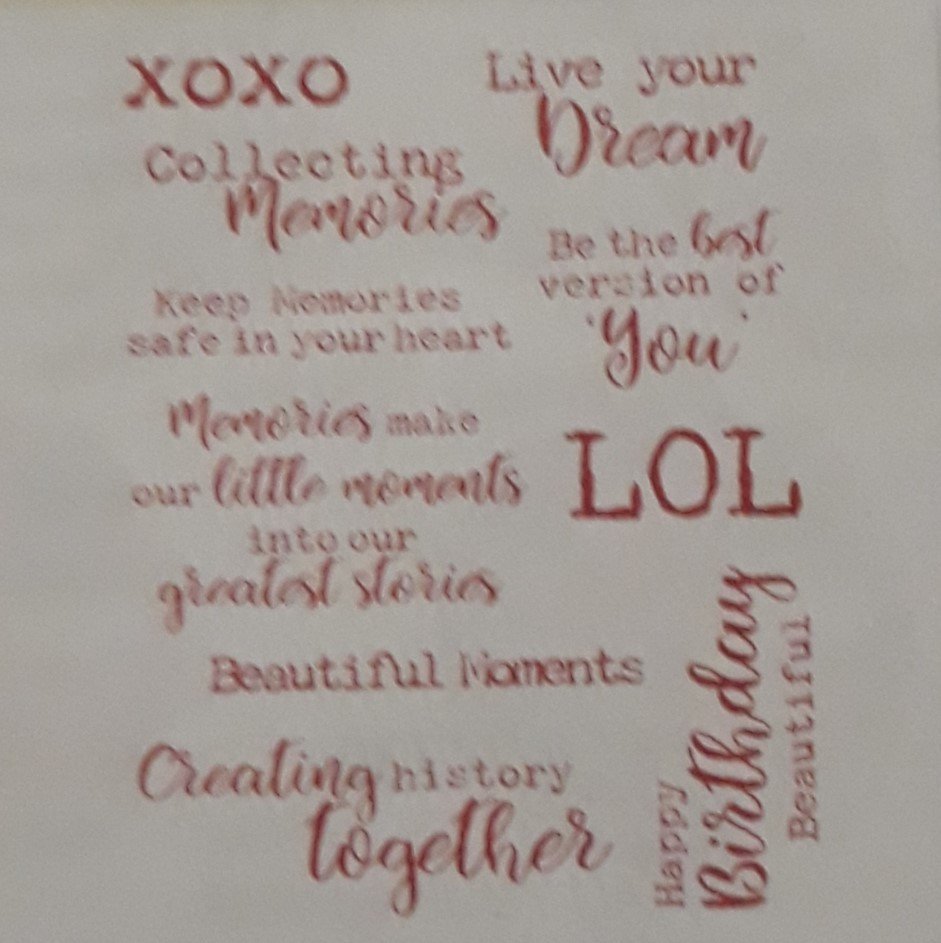 XOXO
Live your
Dream
Collecting
Memories
Be the best
version of
'You'
Keep Memories
safe in your heart
Memories make
our little moments
into our
greatest stories
LOL
Beautiful Moments
Creating history
together
Happy
Birthday
Beautiful